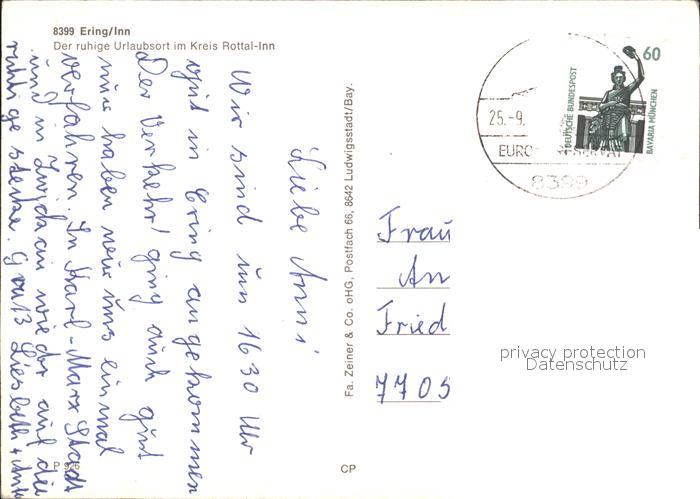 8399 Ering/Inn
Der ruhige Urlaubsort im Kreis Rottal-Inn
Liebe Anni
Wir sind um 16 30 Uhr
gut in Ering angekommen
Der Verkehr ging auch gut
nur haben wir uns einmal
verfahren. In Karl-Marx Stadt
und in Zwickau wieder auf die
richtige Strecke. Gruß Liesbeth +
Fa. Zeiner & Co. oHG, Postfach 66, 8642 Ludwigsstadt/Bay.
60
DEUTSCHE BUNDESPOST
BAVARIA MÜNCHEN
25.-9.
EURO
8399
Frau
An
Fried
7705
privacy protection
Datenschutz
P 926
CP